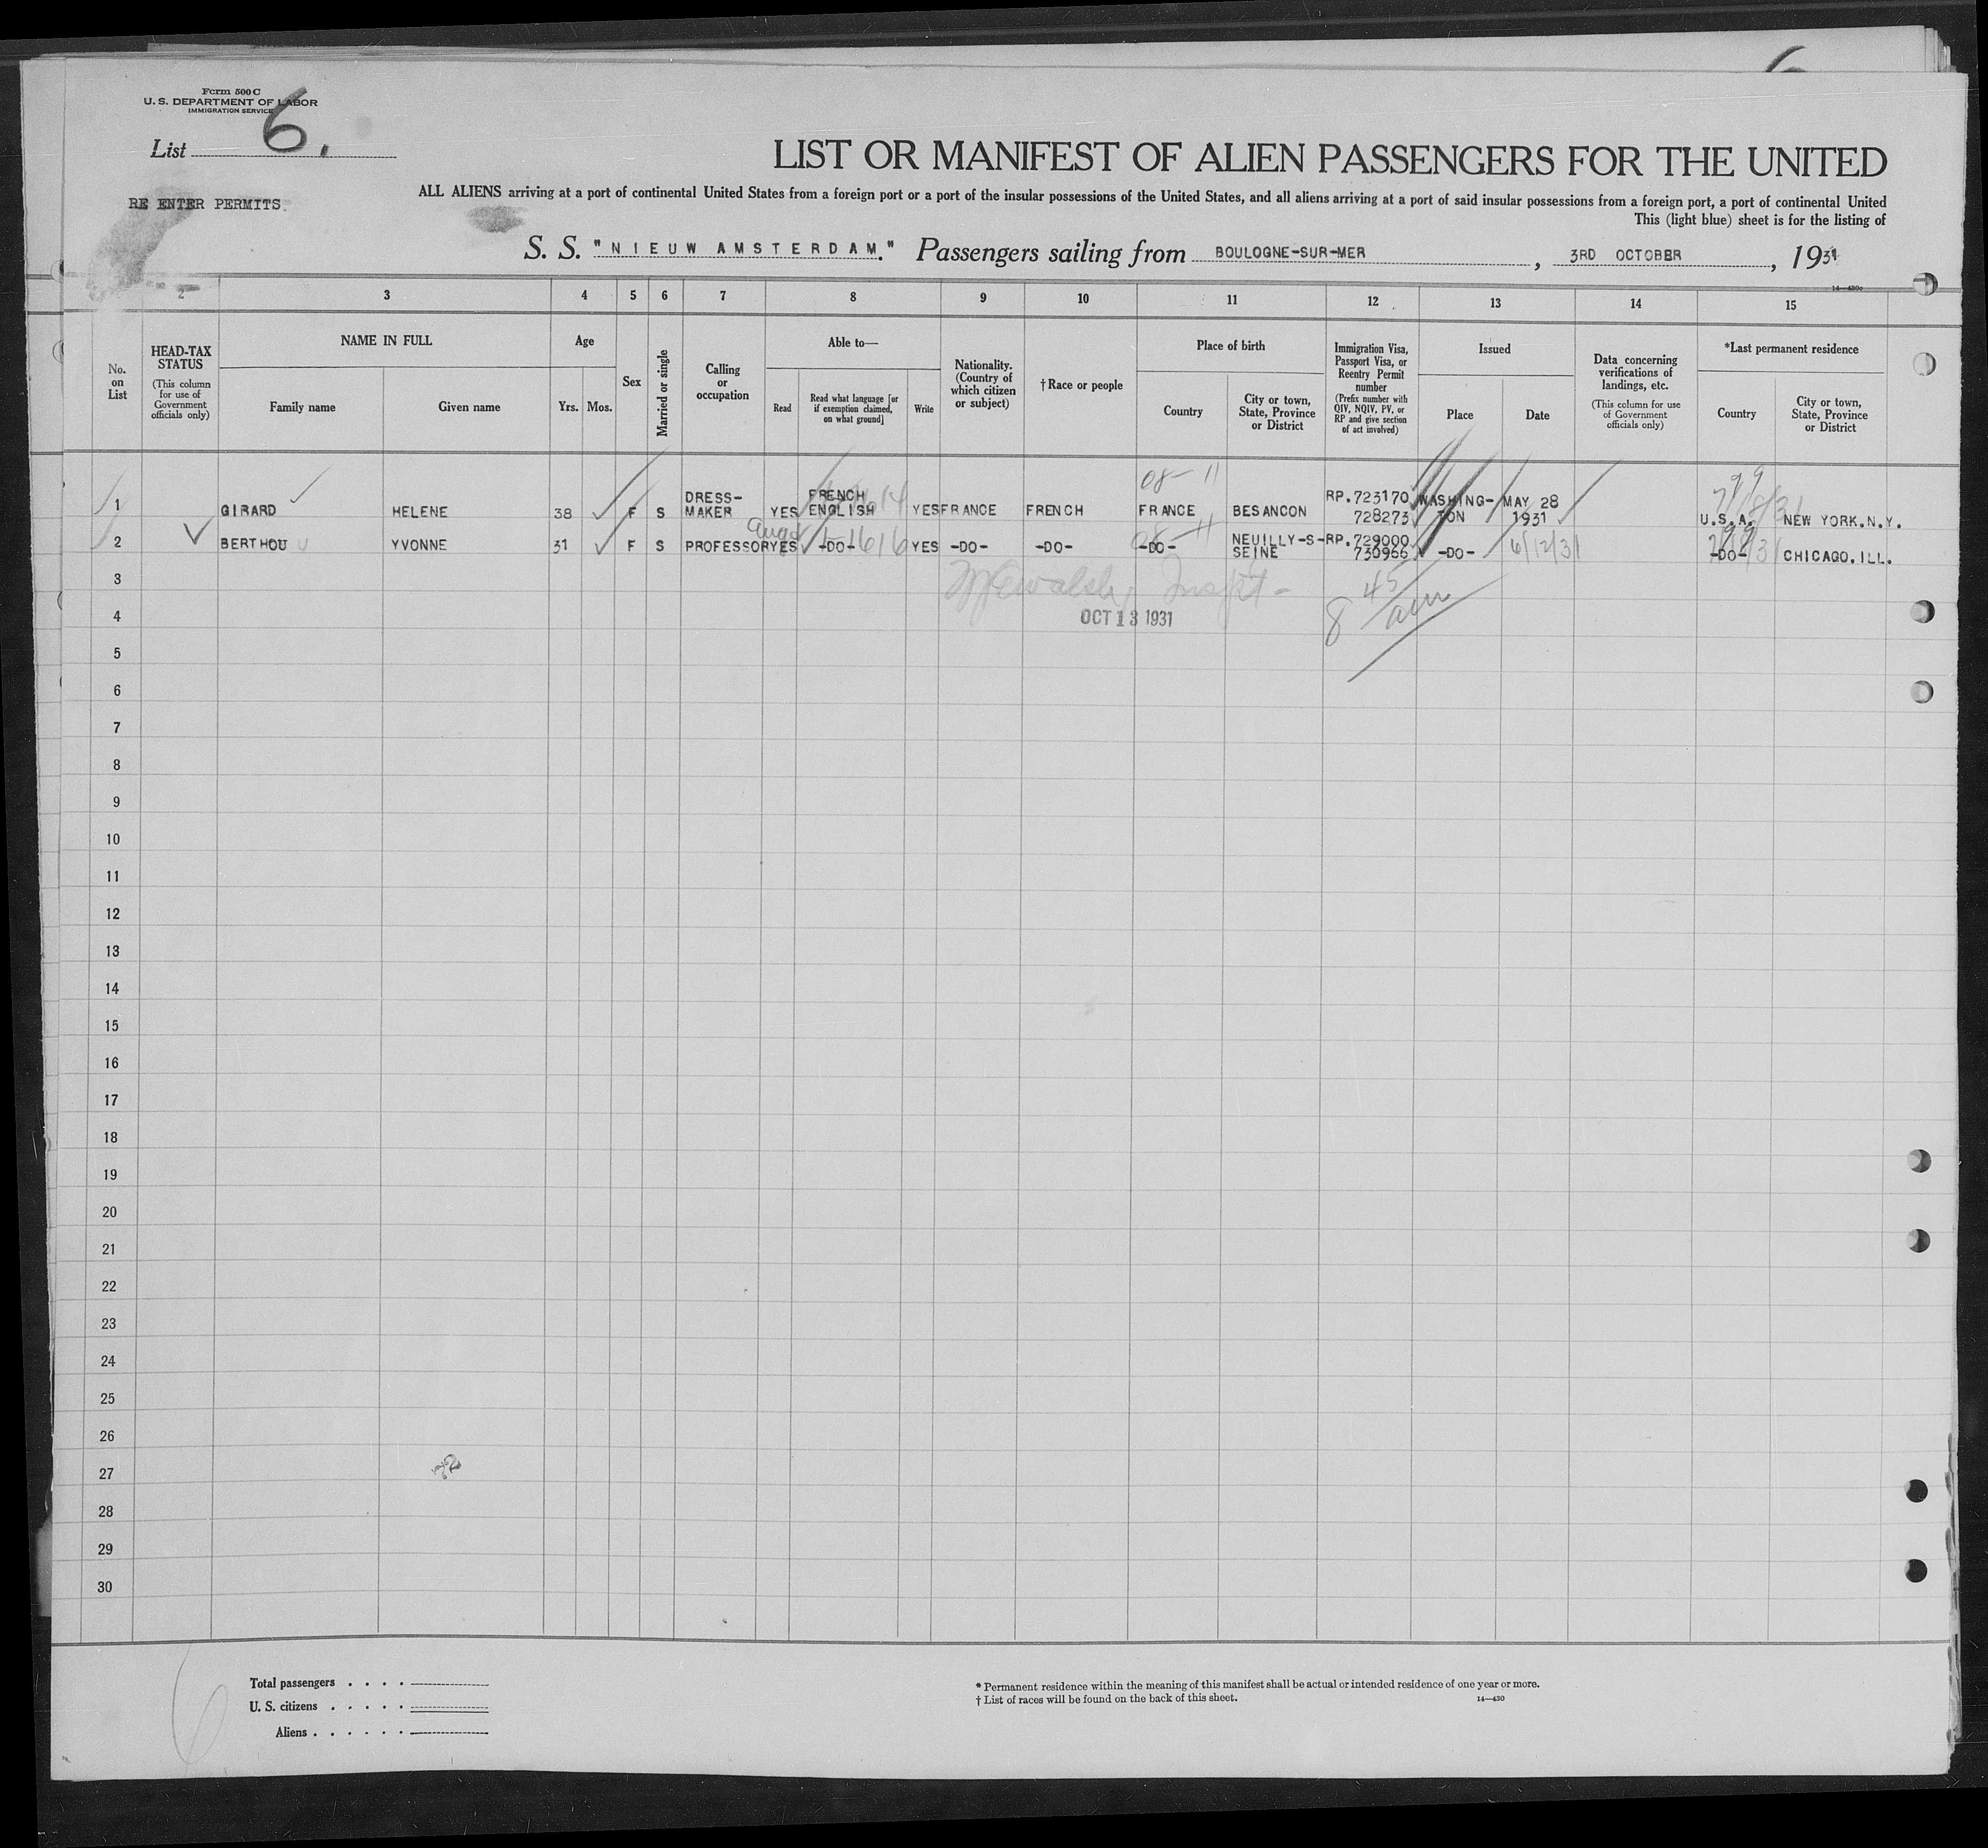 Form 500 C
U. S. DEPARTMENT OF LABOR
IMMIGRATION SERVICE
List 6.
LIST OR MANIFEST OF ALIEN PASSENGERS FOR THE UNITED
RE ENTER PERMITS
ALL ALIENS arriving at a port of continental United States from a foreign port or a port of the insular possessions of the United States, and all aliens arriving at a port of said insular possessions from a foreign port, a port of continental United
This (light blue) sheet is for the listing of
S. S. "NIEUW AMSTERDAM." Passengers sailing from BOULOGNE-SUR-MER, 3RD OCTOBER, 1931
2 3 4 5 6 7 8 9 10 11 12 13 14 15
No. on List
HEAD-TAX STATUS
(This column for use of Government officials only)
NAME IN FULL
Family name
Given name
Age
Yrs. Mos.
Sex
Married or single
Calling or occupation
Able to—
Read
Read what language [or if exemption claimed, on what ground]
Write
Nationality. (Country of which citizen or subject)
†Race or people
Place of birth
Country
City or town, State, Province or District
Immigration Visa, Passport Visa, or Reentry Permit number
(Prefix number with QIV, NQIV, PV, or RP and give section of act involved)
Issued
Place
Date
Data concerning verifications of landings, etc.
(This column for use of Government officials only)
*Last permanent residence
Country
City or town, State, Province or District
08-11
1 GIRARD HELENE 38 F S DRESS-MAKER YES FRENCH ENGLISH YES FRANCE FRENCH FRANCE BESANCON RP.723170 728273 WASHING-TON MAY 28 1931 U.S.A. NEW YORK.N.Y.
08-11
2 BERTHOU YVONNE 31 F S PROFESSOR YES -DO- YES -DO- -DO- -DO- NEUILLY-S-SEINE RP.729000 730966 -DO- 6/12/31 -DO- CHICAGO.ILL.
3
8 45 am
OCT 13 1931
4
5
6
7
8
9
10
11
12
13
14
15
16
17
18
19
20
21
22
23
24
25
26
27
28
29
30
Total passengers
U. S. citizens
Aliens
* Permanent residence within the meaning of this manifest shall be actual or intended residence of one year or more.
† List of races will be found on the back of this sheet.
14—430